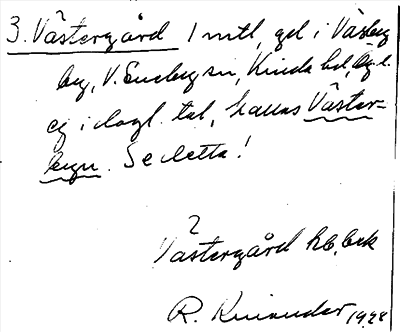 3. Västergård 1 mtl, gd i Västerby
by, V. Eneby sn, Kinda hd, Ög. l.
ej i dagl. tal, kallas Väster-
byn. Se detta!
?
Västergård hb, bek
R. Kinander 1928